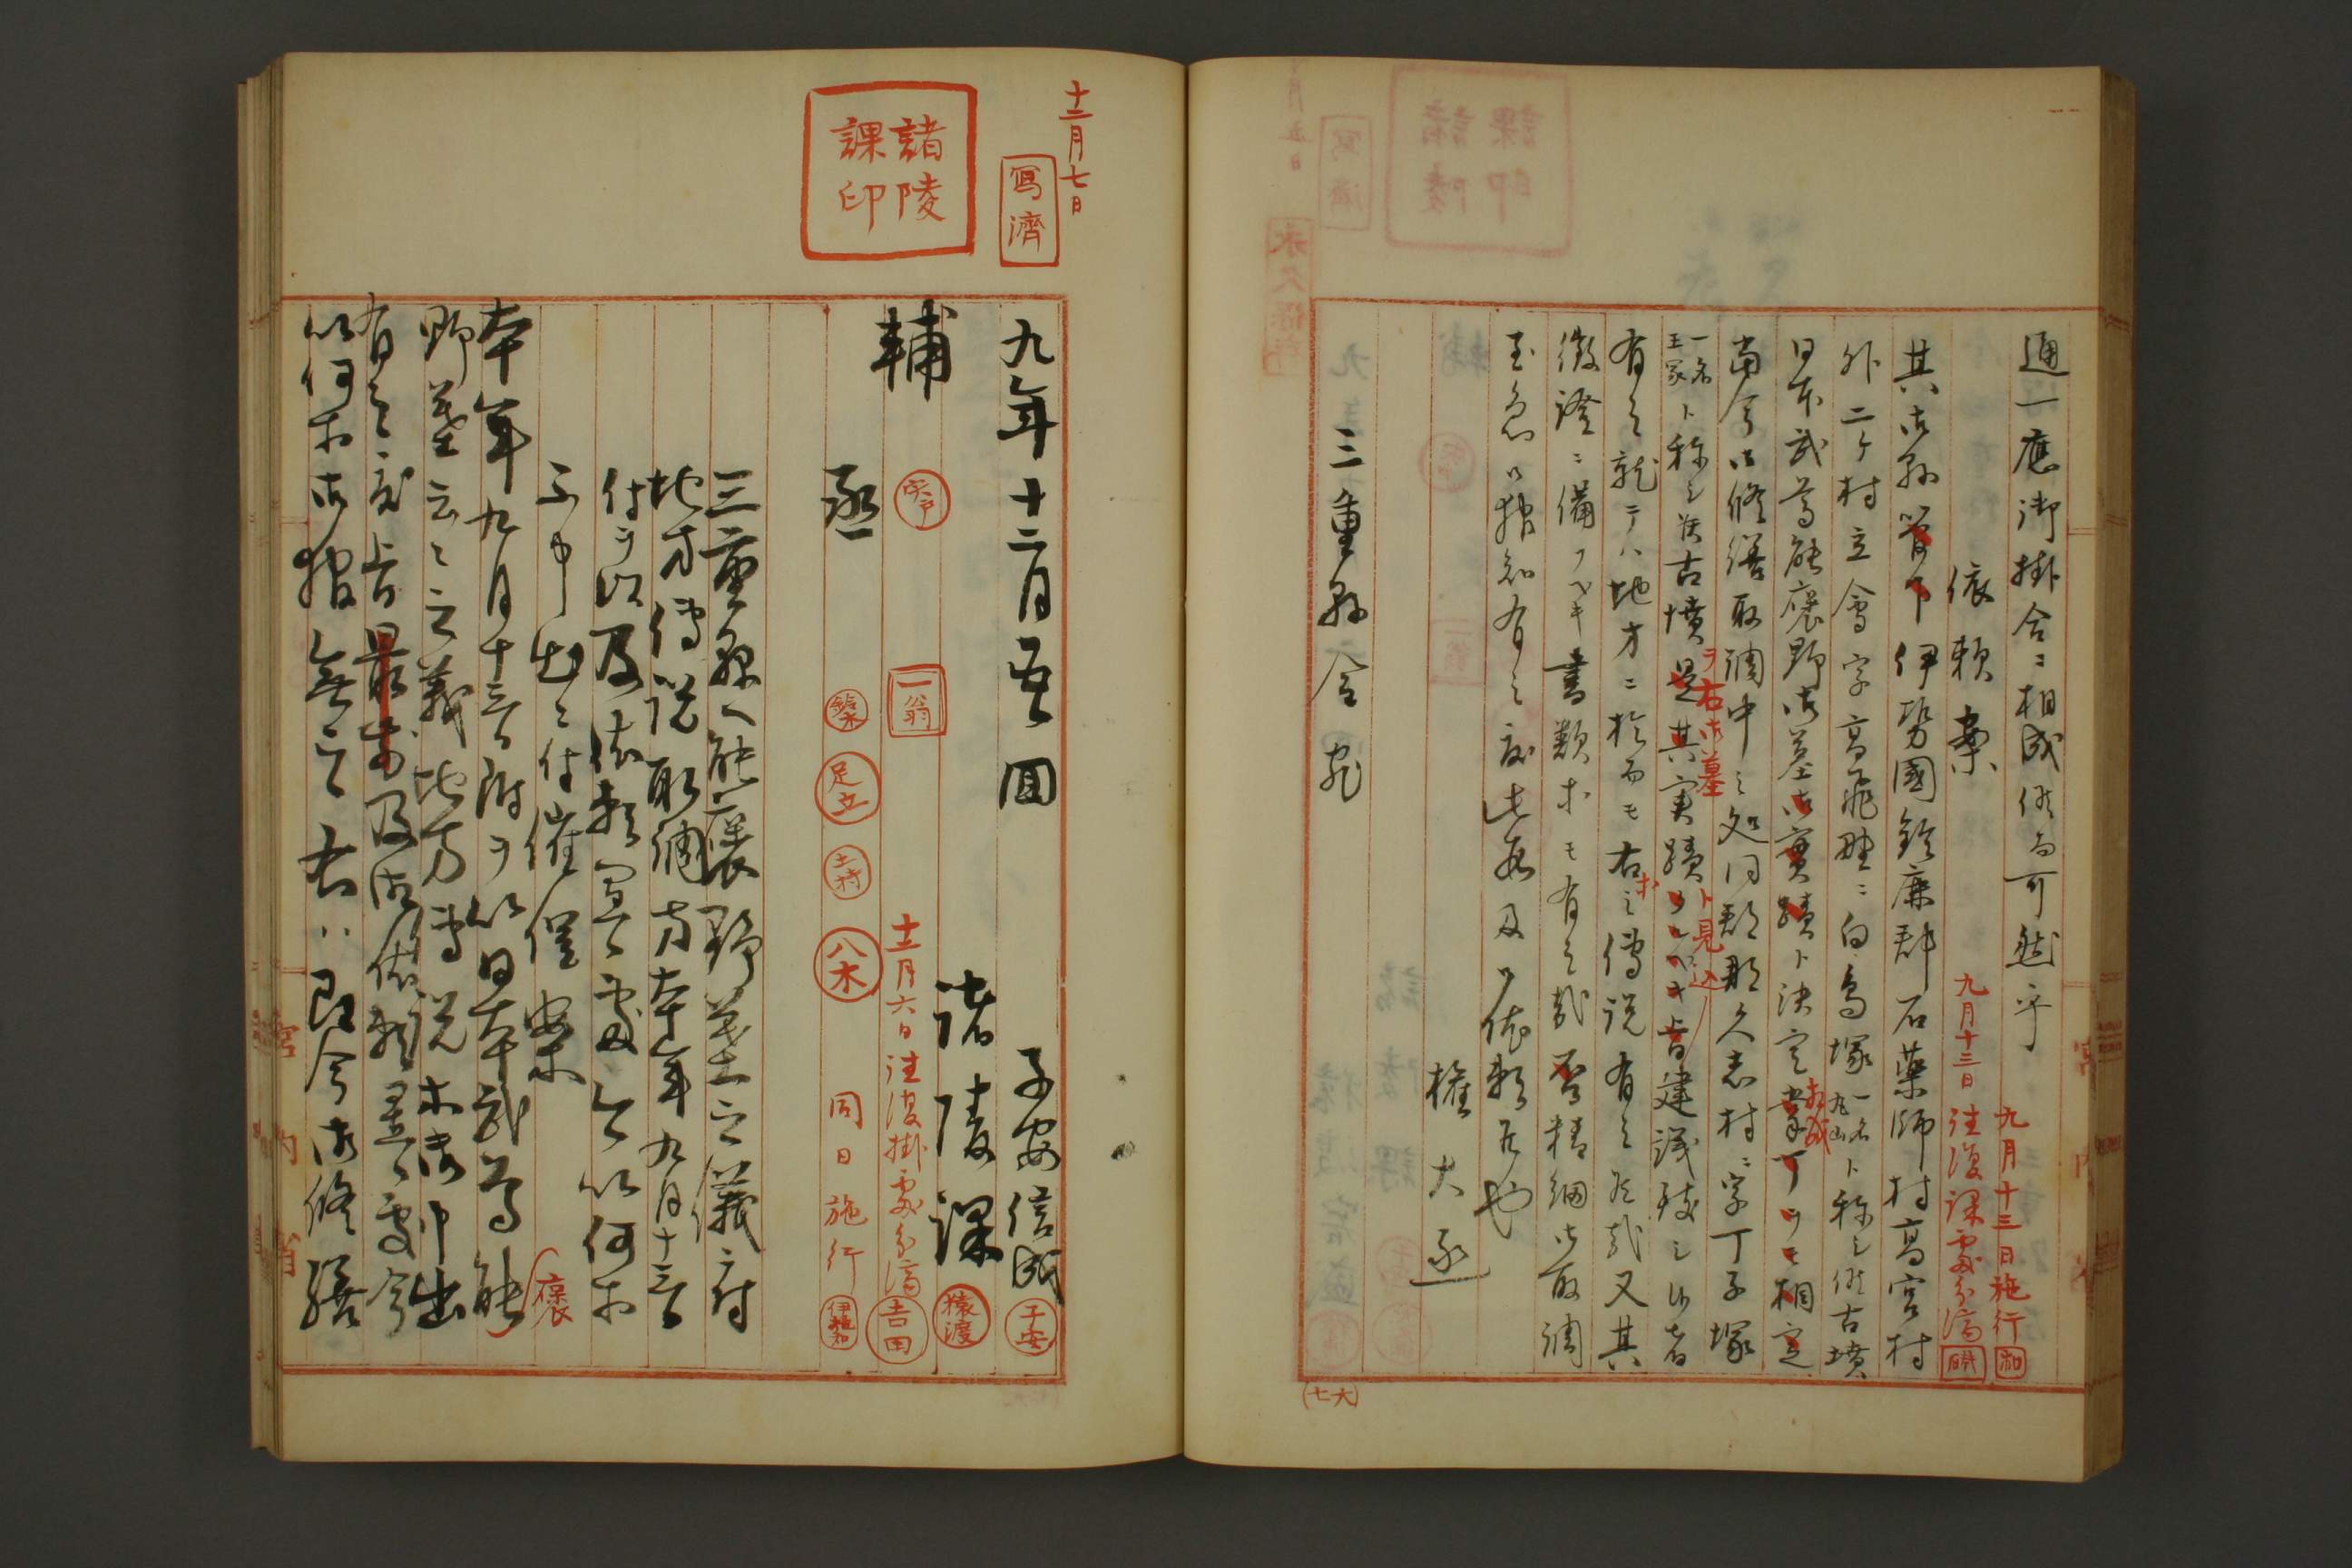 通一應御掛合ニ相成候而可然乎
九月十三日施行
依頼案
九月十三日往復課處分済
其御縣管下伊勢國鈴鹿郡石薬師村高宮村
外二ケ村立會字高飛野ニ白鳥塚一名丸山ト称シ候古墳
日本武尊能褒野御墓御實蹟ト決定
相成
相定
尚今御修繕取調中之処同郡那久志村ニ字丁子塚
一名王塚ト称シ候古墳是其実蹟
ヲ右御墓
ト見込
旨建議致シ候者
有之就テハ地方ニ於而モ右之傳説有之候哉又其
徴證ニ備フヘキ書類ホモ有之哉否精細御取調
至急御報知有之度此段及御依頼候也
權大丞
三重縣令宛
(七六)
十二月七日
寫濟
諸陵課印
九年十二月五日 回
子安信成
子安
諸陵課
猿渡
輔
宍戸
一翁
十二月六日往復掛處分済
吉田
丞
鈴木
足立
土持
八木
同日施行
三重縣へ能褒野墓之儀ニ付
地方傳説取調方本年九月十三日
付ヲ以及依頼置候處今以何ホ
不申出ニ付催促案
本年九月十三日附ヲ以日本武尊能
褒
野墓云々之義地方傳説ホ御申出
有之度旨最前及御依頼置候處今
以何ホ御報無之右ハ即今御修繕
宮内省